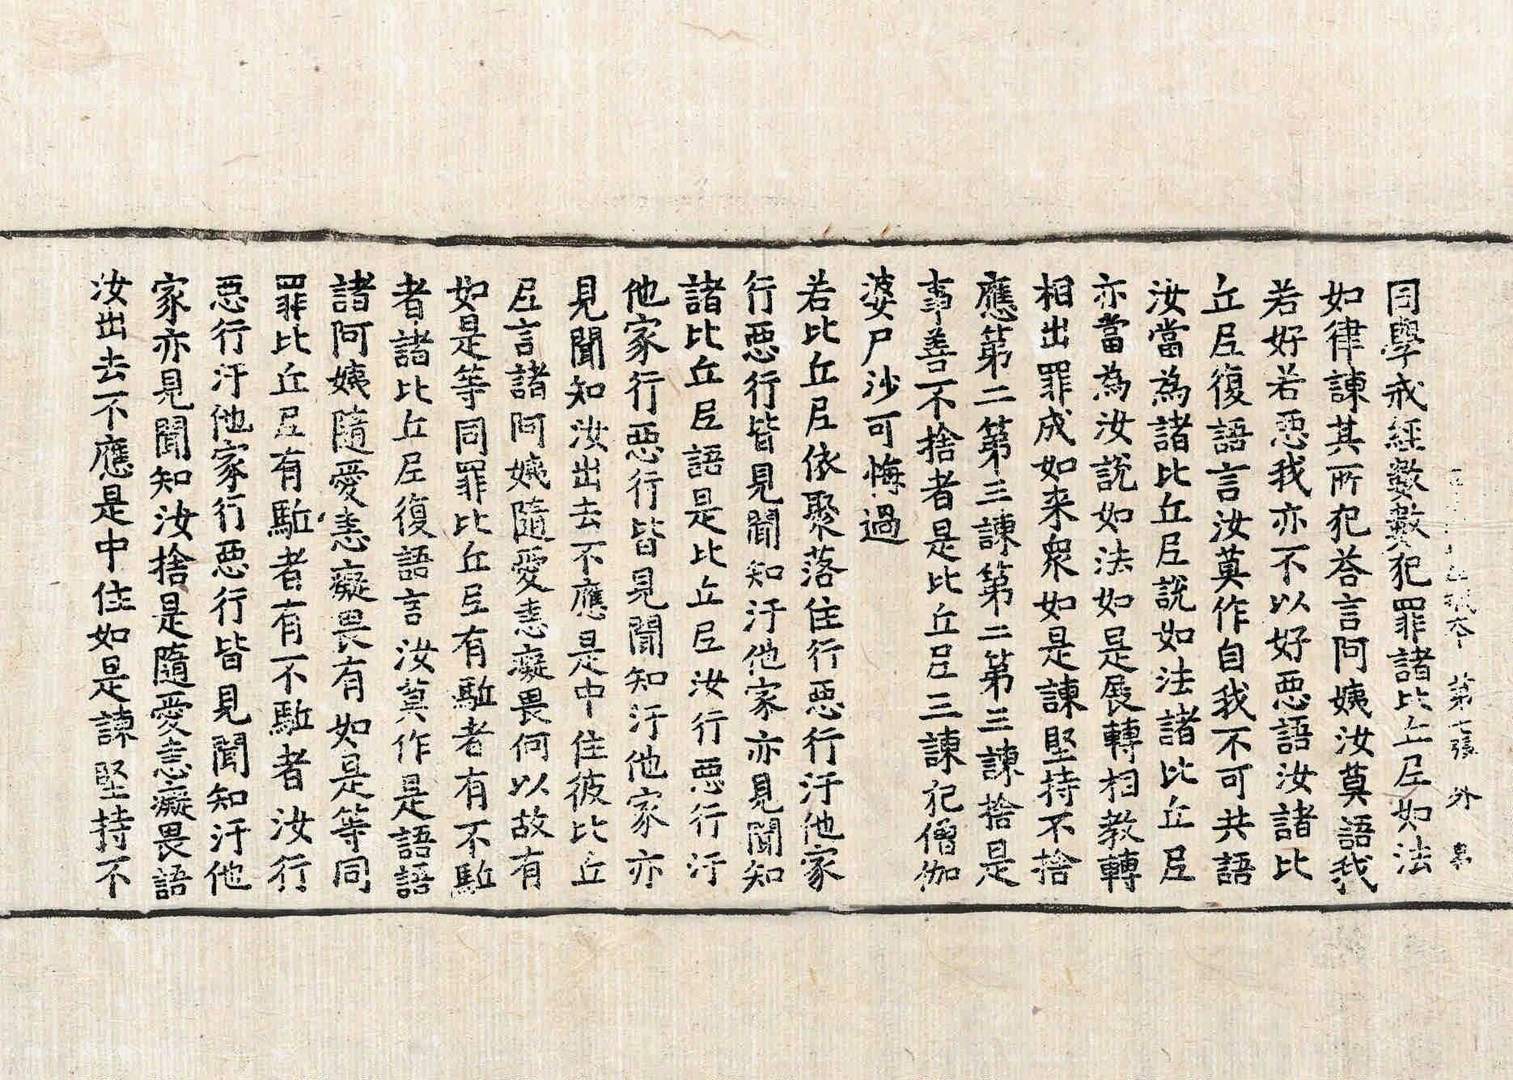 第七張 外
同學戒經數數犯罪諸比丘𡰱如法
如律諫其所犯荅言阿姨汝莫語我
若好若惡我亦不以好惡語汝諸比
丘𡰱復語言汝莫作自我不可共語
汝當為諸比丘𡰱說如法諸比丘𡰱
亦當為汝說如法如是展轉相教轉
相出罪成如来衆如是諫堅持不捨
應第二第三諫第二第三諫捨是
事善不捨者是比丘𡰱三諫犯僧伽
婆尸沙可悔過
若比丘𡰱依聚落住行惡行汙他家
行惡行皆見聞知汙他家亦見聞知
諸比丘𡰱語是比丘𡰱汝行惡行汙
他家行惡行皆見聞知汙他家亦
見聞知汝出去不應是中住彼比丘
𡰱言諸阿姨隨愛恚癡畏何以故有
如是等同罪比丘𡰱有駈者有不駈
者諸比丘𡰱復語言汝莫作是語語
諸阿姨隨愛恚癡畏有如是等同
罪比丘𡰱有駈者有不駈者汝行
惡行汙他家行惡行皆見聞知汙他
家亦見聞知汝捨是隨愛恚癡畏語
汝出去不應是中住如是諫堅持不